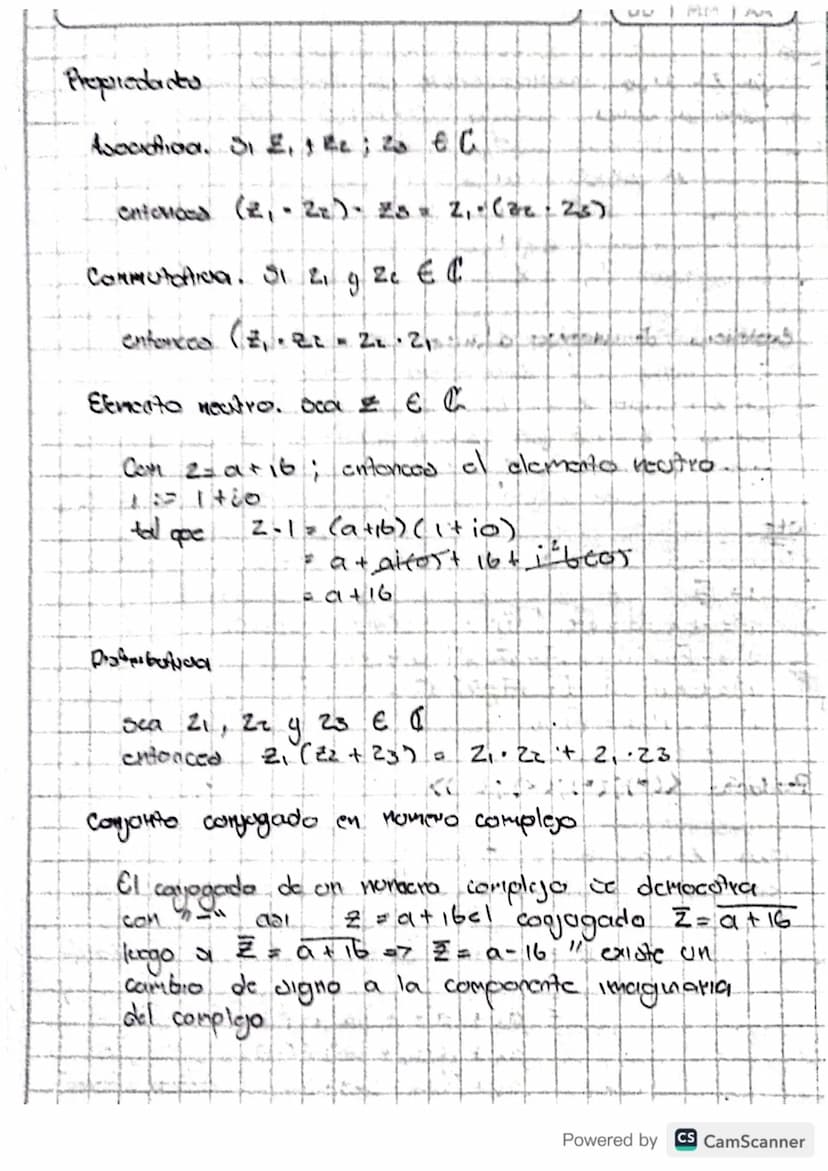 DD | MM | AA
Propiedades
Asociativa. Si z₁, z₂; z₃ ∈ ℂ
entonces (z₁ · z₂) · z₃ = z₁ · (z₂ · z₃)
Conmutativa. Si z₁ y z₂ ∈ ℂ
entonces (z₁ · z₂ = z₂ · z₁
Elemento neutro. sea z ∈ ℂ
Con z = a + ib ; entonces el elemento neutro.
1 := 1 + i0
tal que z · 1 = (a + ib)(1 + i0)
= a + ai(0) + ib + i²b(0)
= a + ib
Distributiva
sea z₁, z₂ y z₃ ∈ ℂ
entonces z₁(z₂ + z₃) = z₁ · z₂ + z₁ · z₃
Conjunto conjugado en numero complejo
El conjugado de un numero complejo se demuestra
con "—" asi z = a + ib el conjugado z̅ = \overline{a + ib}
luego si z̅ = \overline{a + ib} => z̅ = a - ib " existe un
cambio de signo a la componente imaginaria
del complejo
Powered by CS CamScanner